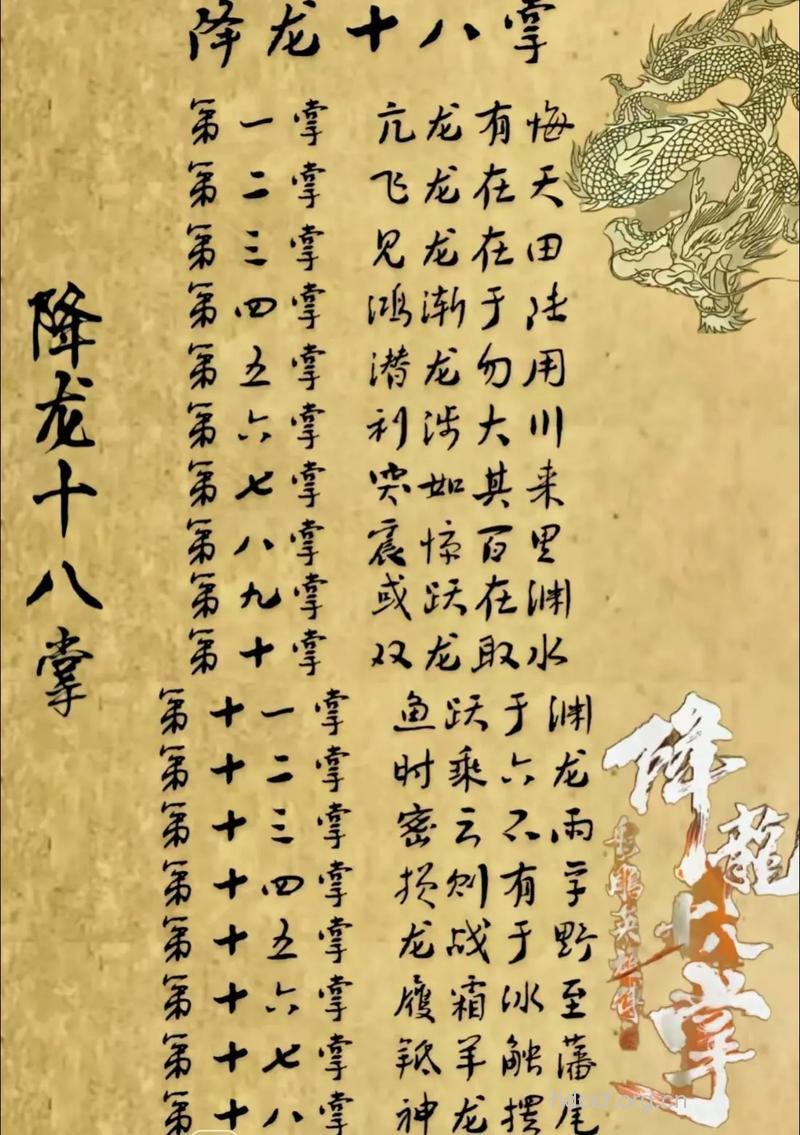 降龙十八掌
第一掌 亢龙有悔
第二掌 飞龙在天
第三掌 见龙在田
第四掌 鸿渐于陆
第五掌 潜龙勿用
第六掌 利涉大川
第七掌 突如其来
第八掌 震惊百里
第九掌 或跃在渊
第十掌 双龙取水
第十一掌 鱼跃于渊
第十二掌 时乘六龙
第十三掌 密云不雨
第十四掌 损则有孚
第十五掌 龙战于野
第十六掌 履霜冰至
第十七掌 羝羊触藩
第十八掌 神龙摆尾
降龙十八掌
降龍十八掌